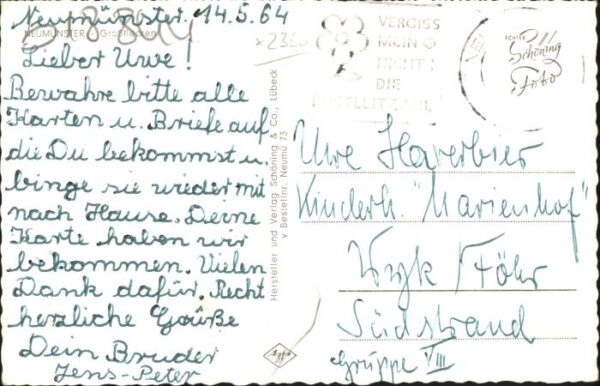 Neumünster. 14.5.64
NEUMÜNSTER - Großflecken
Lieber Uwe!
Bewahre bitte alle
Karten u. Briefe auf
die Du bekommst u.
binge sie wieder mit
nach Hause. Deine
Karte haben wir
bekommen. Vielen
Dank dafür. Recht
herzliche Grüße
Dein Bruder
Jens-Peter
Hersteller und Verlag Schöning & Co., Lübeck
v Bestellnr. Neumü 73
VERGISS
MEIN
NICHT:
DIE
POSTLEITZAHL
ECHTES
Schöning
Foto
Agfa
Uwe Haverbier
Kinderh. "Marienhof"
Wyk / Föhr
Südstrand
Gruppe VIII